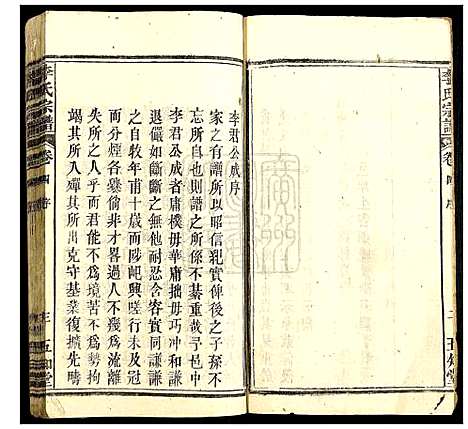 李氏宗譜
卷四
序
五知堂
李君公成序
家之有譜所以昭信犯實俾後之子孫不
忘所自也則譜之所係不綦重哉予邑中
李君公成者庸樸毋華庸拙毋巧冲和謙
退儼如斷斷之無他耐恐含容實同謙謙
之自牧年甫十歲而陟屺興嗟行未免流離
而分煙各爨倫非才畧過人不幾為
失所之人乎而君能不為境苦不為勢拘
竭其所入殫其所出克守基業復擴先疇
李氏宗譜
卷四
序
五知堂